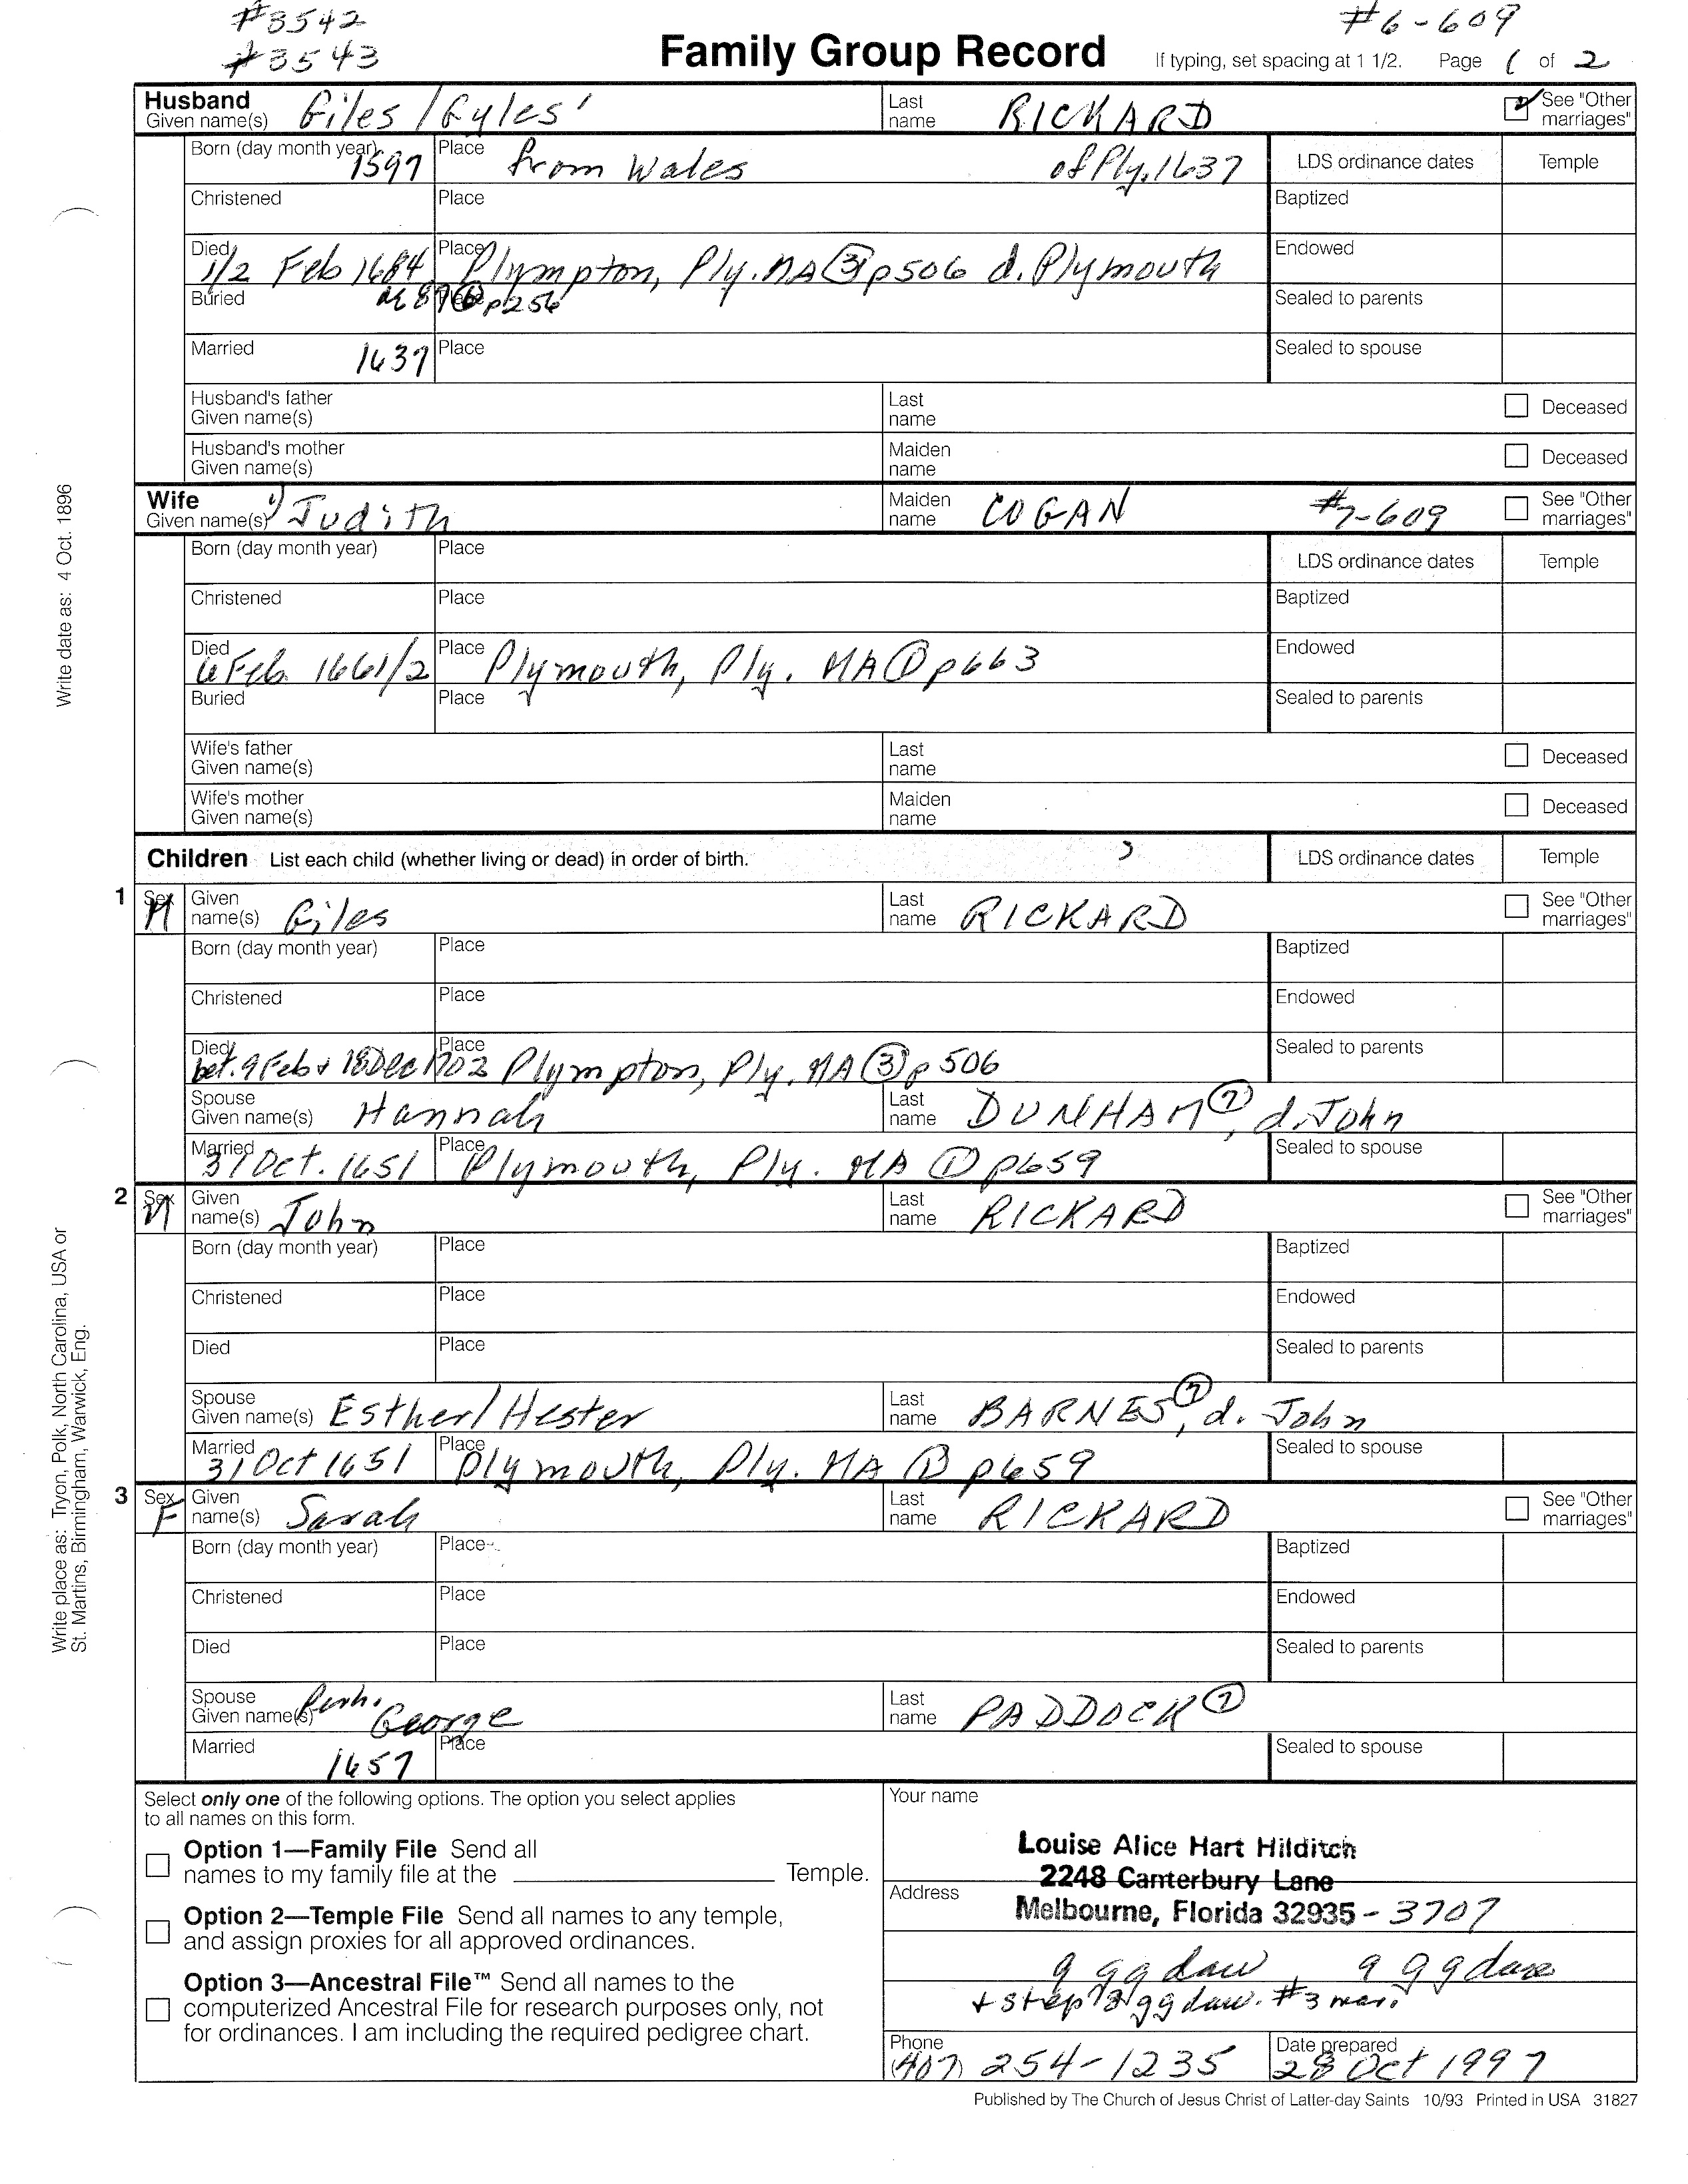 #3542
#3543
#6-609
Family Group Record If typing, set spacing at 1 1/2. Page 1 of 2
Husband Given name(s) Giles / Gyles' Last name RICKARD See "Other marriages"
Born (day month year) 1597 Place from Wales of Ply. 1637 LDS ordinance dates Temple
Christened Place Baptized
Died 1/2 Feb 1684 Place Plympton, Ply. MA ③ p506 d. Plymouth Endowed
Buried ae 87 ⑥ p256 Sealed to parents
Married 1637 Place Sealed to spouse
Husband's father Given name(s) Last name Deceased
Husband's mother Given name(s) Maiden name Deceased
Wife Given name(s) 1) Judith Maiden name COGAN #7-609 See "Other marriages"
Born (day month year) Place LDS ordinance dates Temple
Christened Place Baptized
Died 6 Feb. 1661/2 Place Plymouth, Ply. MA ① p663 Endowed
Buried Place Sealed to parents
Wife's father Given name(s) Last name Deceased
Wife's mother Given name(s) Maiden name Deceased
Children List each child (whether living or dead) in order of birth. LDS ordinance dates Temple
1 Sex M Given name(s) Giles Last name RICKARD See "Other marriages"
Born (day month year) Place Baptized
Christened Place Endowed
Died bet. 9 Feb + 18 Dec 1702 Place Plympton, Ply. MA ③ p 506 Sealed to parents
Spouse Given name(s) Hannah Last name DUNHAM ⑦, d. John
Married 31 Oct. 1651 Place Plymouth, Ply. MA ① p659 Sealed to spouse
2 Sex M Given name(s) John Last name RICKARD See "Other marriages"
Born (day month year) Place Baptized
Christened Place Endowed
Died Place Sealed to parents
Spouse Given name(s) Esther/Hester Last name BARNES ⑦, d. John
Married 31 Oct 1651 Place Plymouth, Ply. MA ① p659 Sealed to spouse
3 Sex F Given name(s) Sarah Last name RICKARD See "Other marriages"
Born (day month year) Place Baptized
Christened Place Endowed
Died Place Sealed to parents
Spouse Given name(s) Perh. George Last name PADDOCK ⑦
Married 1657 Place Sealed to spouse
Select only one of the following options. The option you select applies
to all names on this form.
Option 1—Family File Send all
names to my family file at the Temple.
Option 2—Temple File Send all names to any temple,
and assign proxies for all approved ordinances.
Option 3—Ancestral File™ Send all names to the
computerized Ancestral File for research purposes only, not
for ordinances. I am including the required pedigree chart.
Your name
Louise Alice Hart Hilditch
2248 Canterbury Lane
Address
Melbourne, Florida 32935 - 3707
9 gg dau 9 gg dau
+ step gg dau. #3 mar.
Phone (407) 254-1235 Date prepared 28 Oct 1997
Published by The Church of Jesus Christ of Latter-day Saints 10/93 Printed in USA 31827
Write date as: 4 Oct. 1896
Write place as: Tryon, Polk, North Carolina, USA or
St. Martins, Birmingham, Warwick, Eng.